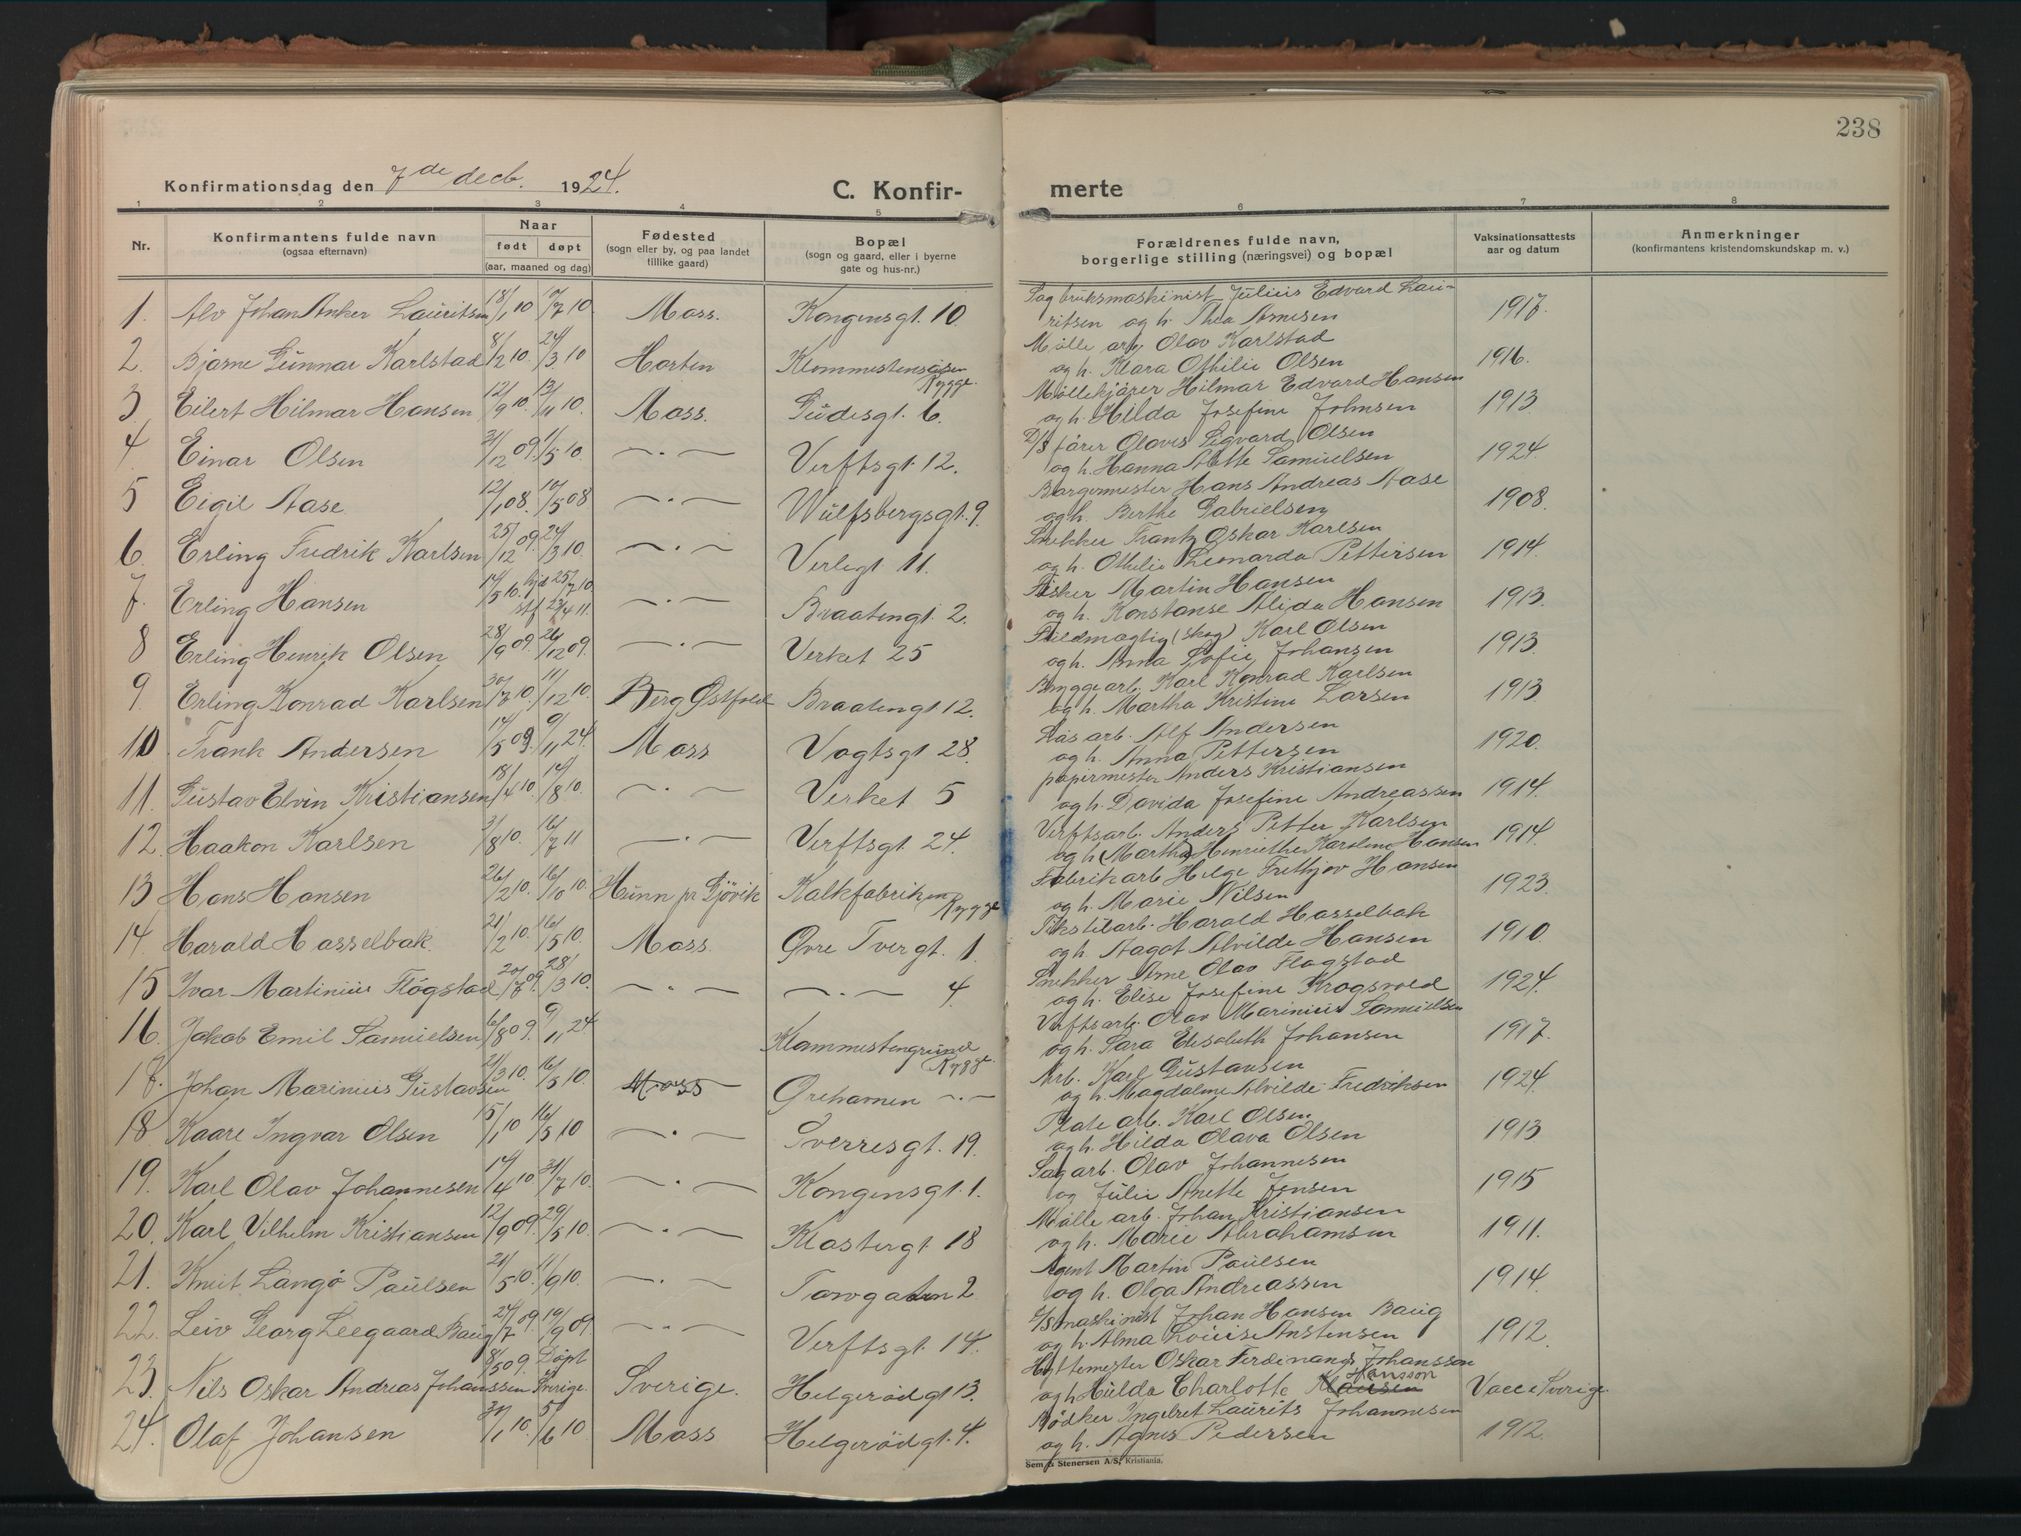 238
Konfirmationsdag den 7de decb. 1924. C. Konfir- merte
1 2 3 4 5 6 7 8
Nr. Konfirmantens fulde navn (ogsaa efternavn) Naar født døpt (aar, maaned og dag) Fødested (sogn eller by, og paa landet tillike gaard) Bopæl (sogn og gaard, eller i byerne gate og hus-nr.) Forældrenes fulde navn, borgerlige stilling (næringsvei) og bopæl Vaksinationsattests aar og datum Anmerkninger (konfirmantens kristendomskundskap m. v.)
1. Alv Johan Anker Lauritsen 18/1 10 17/7 10. Moss. Kongensgt. 10. Sagbruksmaskinist Julius Edvard Lau-
ritsen og h. Thea Arnesen 1917.
2. Bjarne Gunnar Karlstad 8/2 10. 24/3 10 Horten Klommestensåsen Rygge. Mølle arb. Olav Karlstad
og h. Klara Othilie Olsen 1916.
3 Eilert Hilmar Hansen 12/9 10. 13/11 10. Moss. Gudesgt. 6. Møllekjører Hilmar Edvard Hansen
og h. Hilda Josefine Johnsen 1913.
4. Einar Olsen 31/12 09. 1/5 10. —·— Verftsgt. 12. D/S fører Olavis Sigvard Olsen
og h. Hanna Alette Samuelsen 1924.
5 Eigil Aase 12/1 08. 10/5 08 —·— Wulfsbergsgt. 9 Borgermester Hans Andreas Aase
og h. Berthe Gabrielsen 1908.
6. Erling Fredrik Karlsen 25/12 09. 24/3 10. —·— Verlegt 11. Snekker Frantz Oskar Karlsen
og h. Othilie Leonarda Pettersen 1914.
7. Erling Hansen 14/5 10. hjd 25/7 10 stf 23/4 11. —·— Braatengt. 2. Fisker Martin Hansen
og h. Konstanse Alida Hansen 1913.
8 Erling Henrik Olsen 28/9 09. 26/12 09. —·— Verket 25 Fuldmægtig (Skog) Karl Olsen
og h. Anna Sofie Johansen 1913.
9. Erling Konrad Karlsen 30/7 10. 11/12 10. Berg Østfold Braatengt 12. Bryggearb. Karl Konrad Karlsen
og h. Martha Kristine Larsen 1913
10 Frank Andersen 17/5 09. 9/11 24. Moss Vogtsgt 28. Løs arb. Alf Andersen
og h. Anna Pettersen 1920.
11. Gustav Elvin Kristiansen 18/4 10. 14/8 10. —·— Verket 5 papirmester Anders Kristiansen
og h. Davida Josefine Andreassen 1914.
12. Haakon Karlsen 3/8 10. 16/7 11 —·— Verftsgt. 24. Verftsarb. Anders Petter Karlsen
og h. (Martha) Henriethe Karoline Hansen 1914.
13 Hans Hansen 26/2 10. 16/10 10. Hunn pr Gjøvik Kalkfabriken Rygge Fabrikarb Helge Frithjov Hansen
og h. Marie Nilsen 1923.
14. Harald Hasselbak. 21/2 10. 16/5 10. Moss. Øvre Tvergt. 1. Tekstilarb. Harald Hasselbak
og h. Aagot Alvilde Hansen 1910.
15 Ivar Martinius Flogstad 20/7 09. 28/3 10. —·— —·— 4 Snekker Arne Olav Flogstad
og h. Elise Josefine Krogsvold 1924.
16. Jakob Emil Samuelsen 6/8 09. 9/11 24. Klommestengrund Rygge. Verftsarb. Olav Marinius Samuelsen
og h. Sara Elisabeth Johansen 1917.
17. Johan Marinius Gustavsen 21/3 10. 16/5 10. Moss Ørehamen —·— Arb. Karl Gustavsen
og h. Magdalene Alvilde Fredriksen 1924.
18. Kaare Ingvar Olsen 15/1 10 16/5 10 —·— Sverresgt. 19. Plate arb. Karl Olsen
og h. Hilda Olava Olsen 1913
19. Karl Olav Johannesen 17/4 10 31/7 10. —·— Kongensgt. 1. Sagarb. Olav Johannesen
og Julie Anette Jensen 1915
20. Karl Vilhelm Kristiansen 12/9 09. 29/5 10. —·— Klostergt. 18 Mølle arb. Johan Kristiansen
og h. Marie Abrahamsen 1911.
21. Knut Langø Paulsen 21/5 10. 11/9 10. —·— Torvgaten 2. Agent Martin Paulsen
og h. Olga Andreassen 1914.
22. Leiv Georg Leegaard Baug 27/7 09. 19/9 09. —·— Verftsgt 14. D/S maskinist Johan Hansen Baug
og h. Alma Lovise Anstensen 1912.
23. Nils Oskar Andreas Johanssen 8/5 09. Døpt i Sverige. Sverige. Helgerødgt 13. Hyttemester Oskar Ferdinand Johansson
og h. Hulda Charlotte Hansson Vacc i Sverige.
24. Olaf Johansen 31/1 10. 5/6 10 Moss Helgerødgt. 4. Bødker Ingebret Laurits Johannesen
og h. Agnes Pedersen 1912.
Sem & Stenersen A/S, Kristiania.